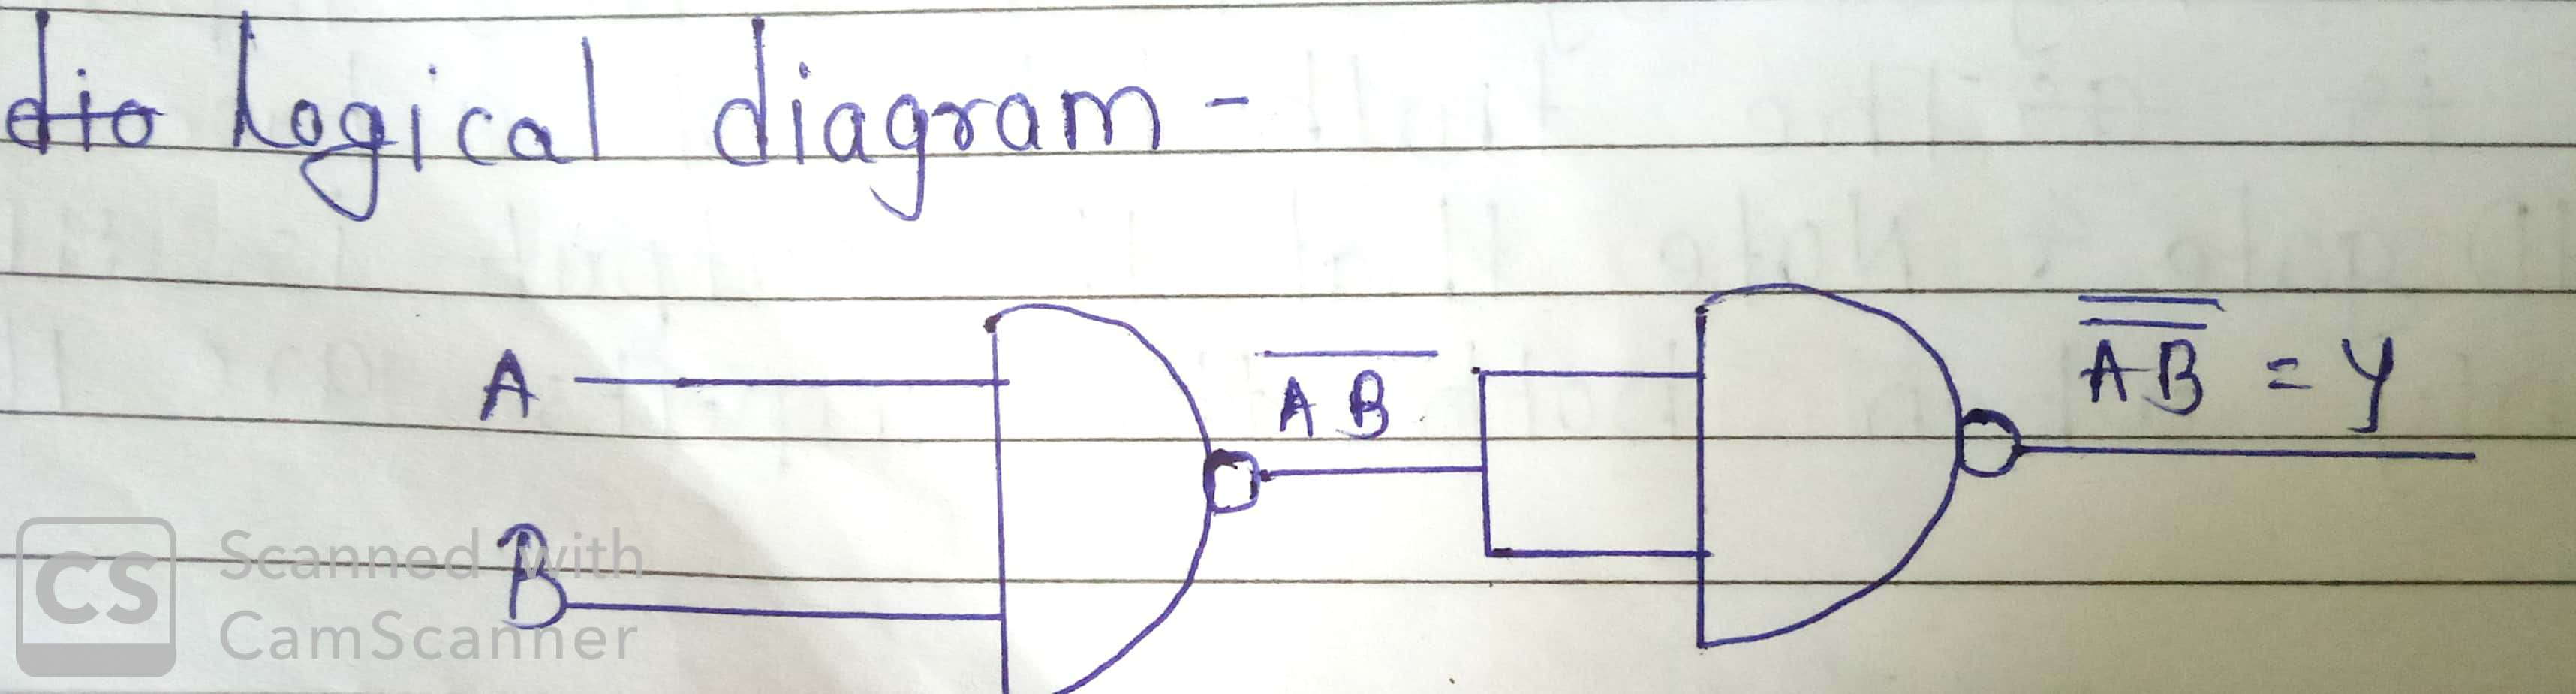 dio Logical diagram -
A
A B
A̿B̿ = Y
B
CS Scanned with
CamScanner